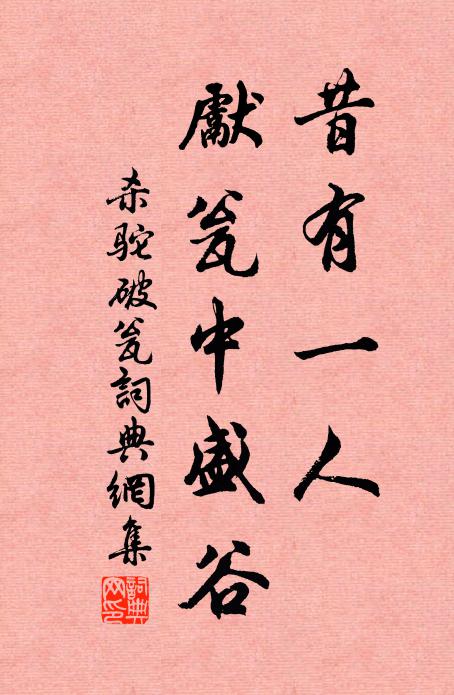 昔有一人
獻瓮中盛谷
杀駝破瓮詞典網集
詞典
网印